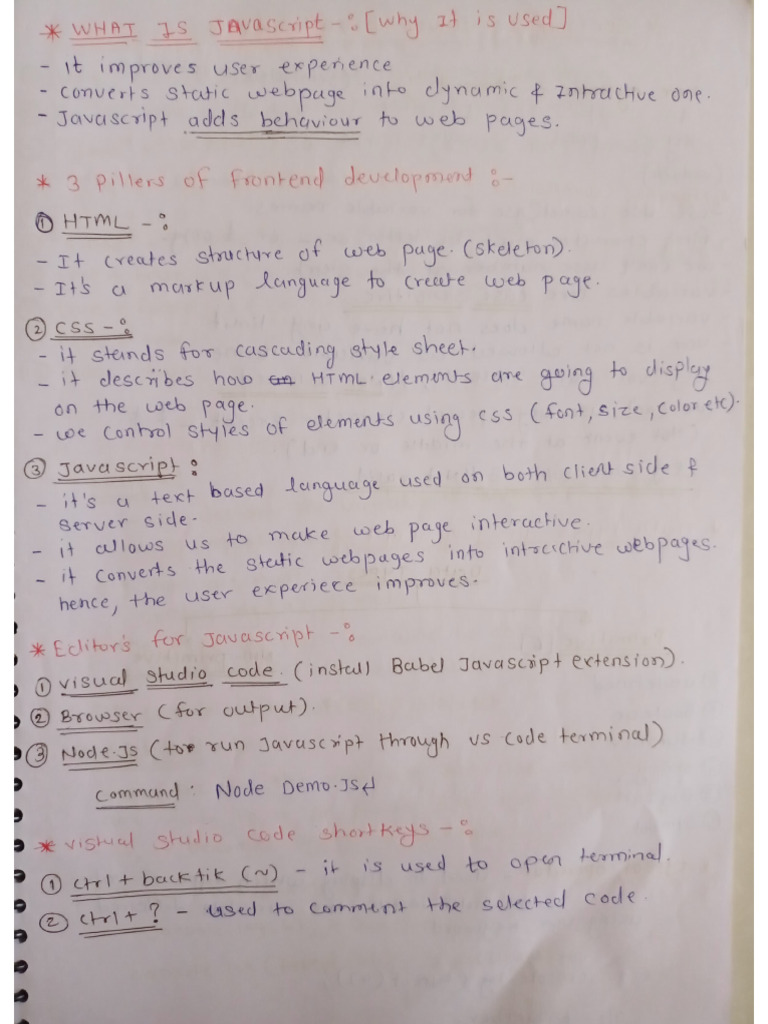 * WHAT IS JAvascript -: [why It is used]
- It improves user experience
- converts static webpage into dynamic & Intractive one.
- Javascript adds behaviour to web pages.
* 3 pillers of frontend development :-
① HTML -:
- It creates structure of web page. (skeleton).
- It's a markup language to create web page.
② CSS -:
- it stands for cascading style sheet.
- it describes how HTML elements are going to display
on the web page.
- we control styles of elements using css (font, size, color etc).
③ Javascript :
- it's a text based language used on both client side &
server side.
- it allows us to make web page interactive.
- it converts the static webpages into intractive webpages.
hence, the user experiece improves.
* Editor's for Javascript -:
① visual studio code. (install Babel Javascript extension).
② Browser (for output).
③ Node.Js (to run Javascript through vs code terminal)
Command : Node Demo.JS↵
* vistual studio code shortkeys -:
① ctrl + backtik (~) - it is used to open terminal.
② ctrl + ? - used to comment the selected code.